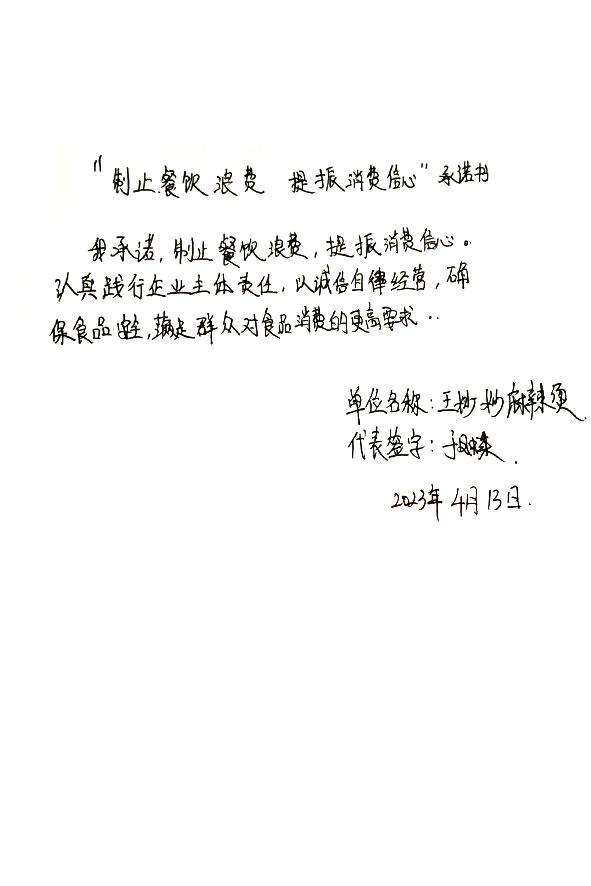 “制止餐饮浪费 提振消费信心”承诺书
我承诺,制止餐饮浪费,提振消费信心。
认真践行企业主体责任,以诚信自律经营,确
保食品安全,满足群众对食品消费的更高要求..
单位名称:王妙妙麻辣烫
代表签字:
2023年4月13日.